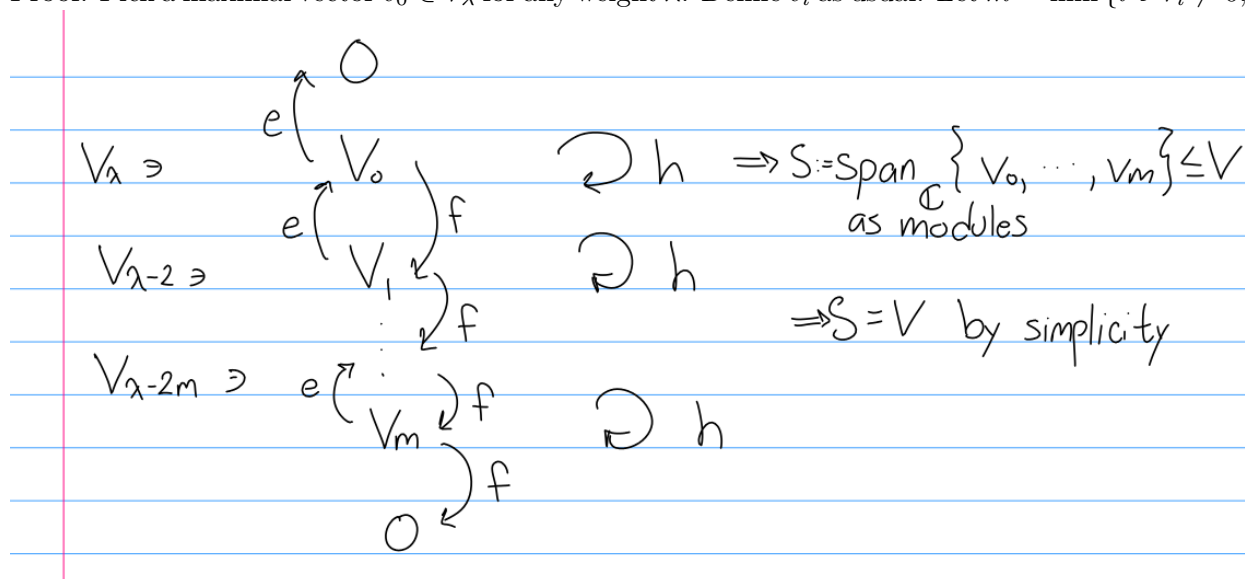 O
e
V₀ ∈ V_λ ∋ h ⇒ S := span_ℂ {V₀, ⋯, Vm} ≤ V
e f as modules
V_λ-2 ∋ V₁ h
f ⇒ S = V by simplicity
V_λ-2m ∋ e f
Vm h
f
O